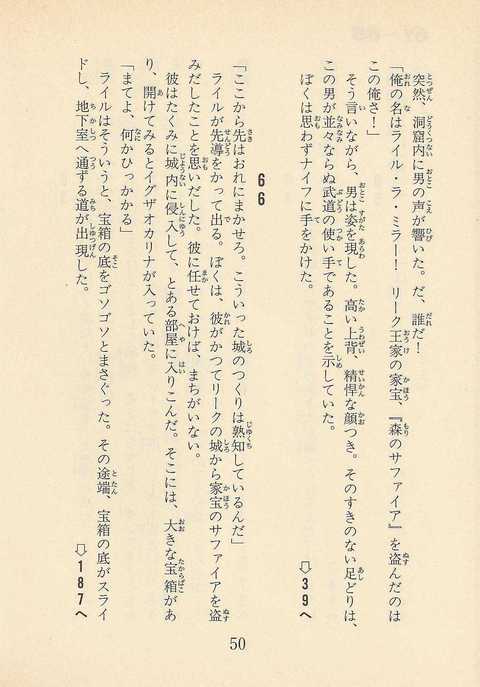 突然、洞窟内に男の声が響いた。だ、誰だ！
「俺の名はライル・ラ・ミラー！　リーク王家の家宝、『森のサファイア』を盗んだのは
この俺さ！」
そう言いながら、男は姿を現した。高い上背、精悍な顔つき。そのすきのない足どりは、
この男が並々ならぬ武道の使い手であることを示していた。
ぼくは思わずナイフに手をかけた。
⇨39へ
66
「ここから先はおれにまかせろ。こういった城のつくりは熟知しているんだ」
ライルが先導をかって出る。ぼくは、彼がかつてリークの城から家宝のサファイアを盗
みだしたことを思いだした。彼に任せておけば、まちがいない。
彼はたくみに城内に侵入して、とある部屋に入りこんだ。そこには、大きな宝箱があ
り、開けてみるとイグザオカリナが入っていた。
「まてよ、何かひっかかる」
ライルはそういうと、宝箱の底をゴソゴソとまさぐった。その途端、宝箱の底がスライ
ドし、地下室へ通ずる道が出現した。
⇨187へ
50